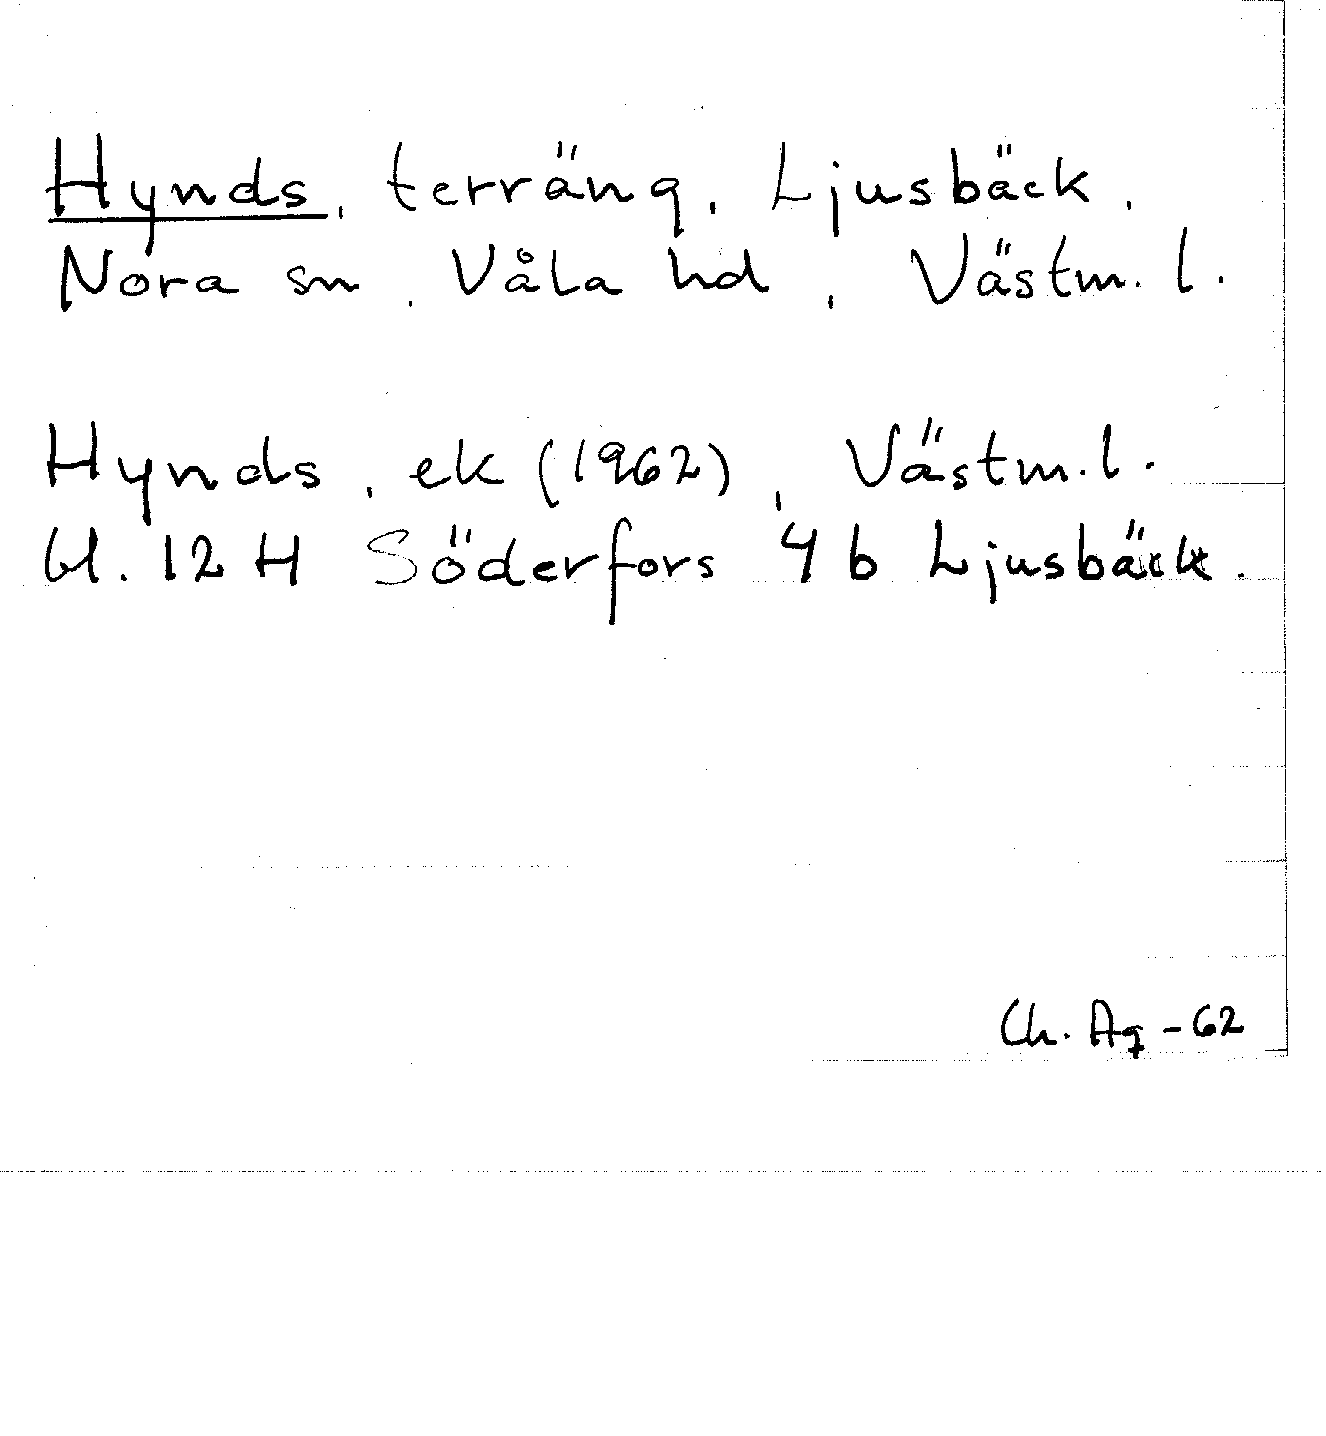 Hynds, terräng, Ljusbäck,
Nora sn, Våla hd, Västm. l.
Hynds, ek (1962), Västm. l.
bl. 12 H Söderfors 4 b Ljusbäck.
Ch. Ag -62